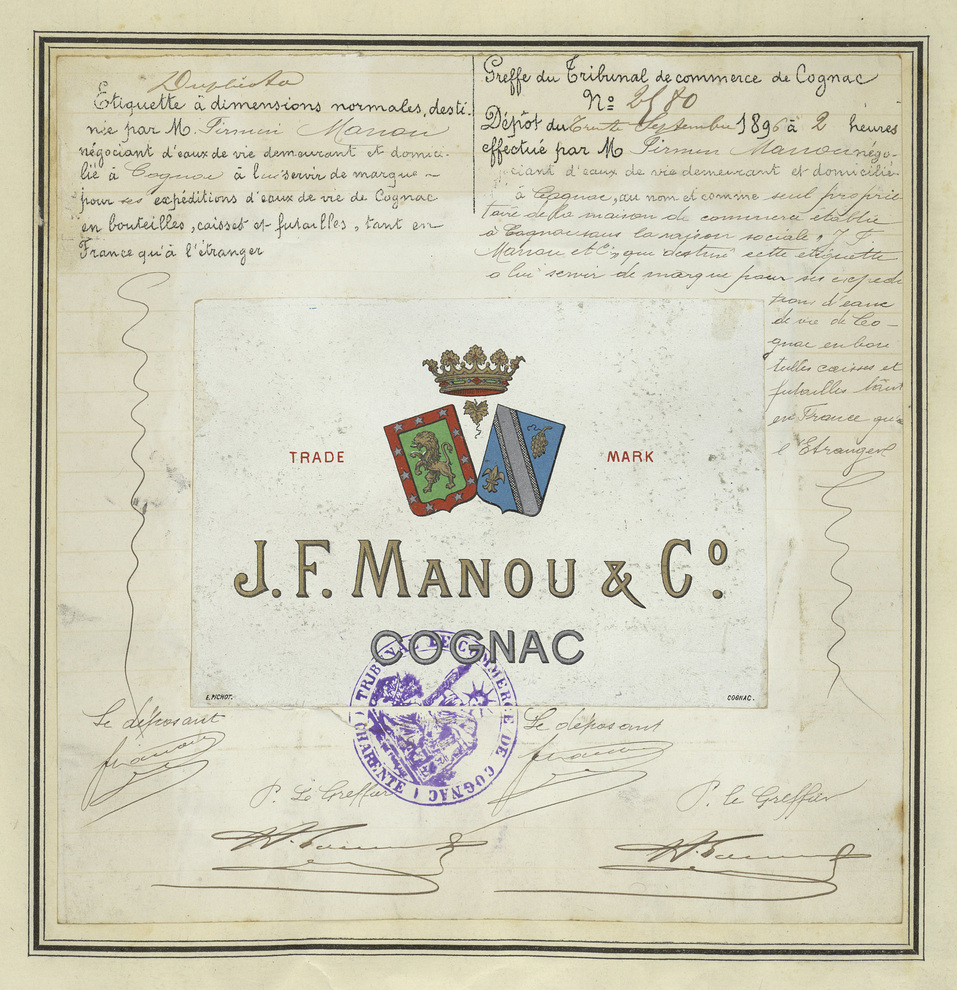 Duplicata
Etiquette à dimensions normales, desti-
née par M. Firmin Manou
négociant d'eaux de vie demeurant et domici-
lié à Cognac à lui servir de marque
pour ses expéditions d'eaux de vie de Cognac
en bouteilles, caisses et futailles, tant en
France qu'à l'étranger
Greffe du Tribunal de commerce de Cognac
Nº 2580
Dépôt du trente Septembre 1896 à 2 heures
effectué par M Firmin Manou négo-
ciant d'eaux de vie demeurant et domicilié
à Cognac, au nom et comme seul proprié-
taire de la maison de commerce établie
à Cognac sous la raison sociale " J. F.
Manou et Cie" qui destine cette étiquette
à lui servir de marque pour ses expédi
tions d'eaux
de vie de Co-
gnac en bou
teilles caisses et
futailles tant
en France qu'a
l'Etranger
TRADE MARK
J. F. MANOU & Cº.
COGNAC
E. PICHOT.
COGNAC.
TRIBUNAL DE COMMERCE DE COGNAC (CHARENTE)
Le déposant
Le déposant
P. Le Greffier
P. le Greffier